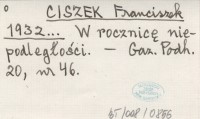 CISZEK Franciszek
1932... W rocznicę nie-
podległości. — Gaz. Podh.
20, nr 46.